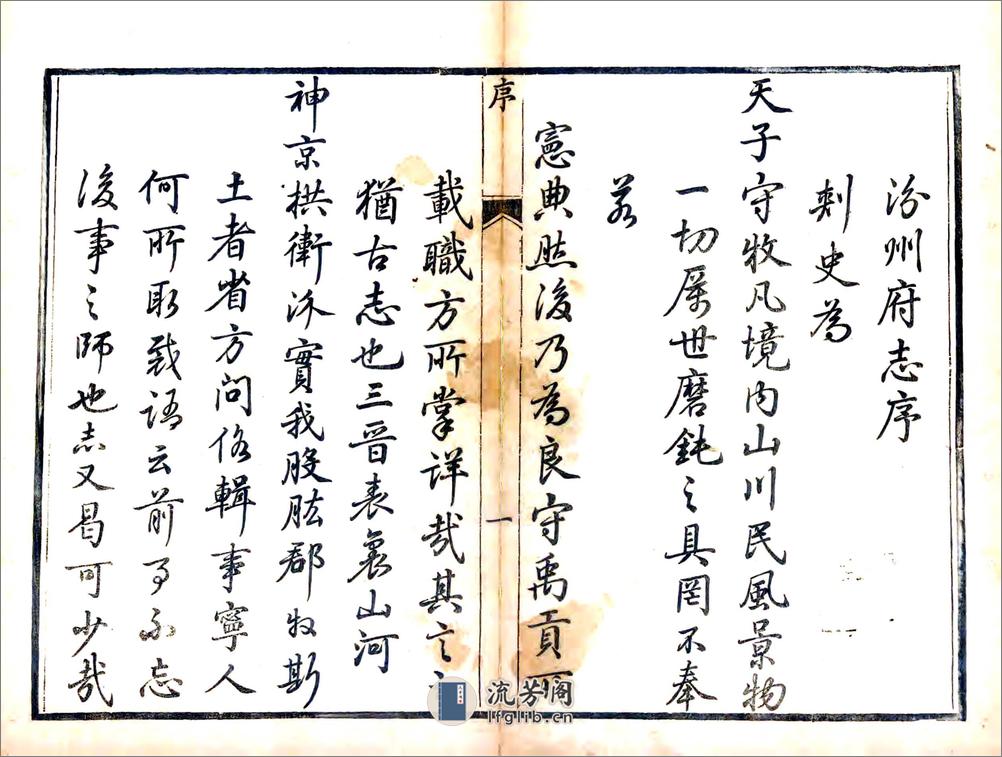 汾州府志序
刺史為
天子守牧凡境内山川民風景物
一切厲世磨鈍之具罔不奉
若
憲典然後乃為良守禹貢所
序
一
載職方所掌詳哉其言之
猶古志也三晉表裏山河
神京拱衛汾實我股肱郡牧斯
土者省方問俗輯事寧人
何所取裁語云前事不忘
後事之師也志又曷可少哉
流芳阁
lfglib.cn